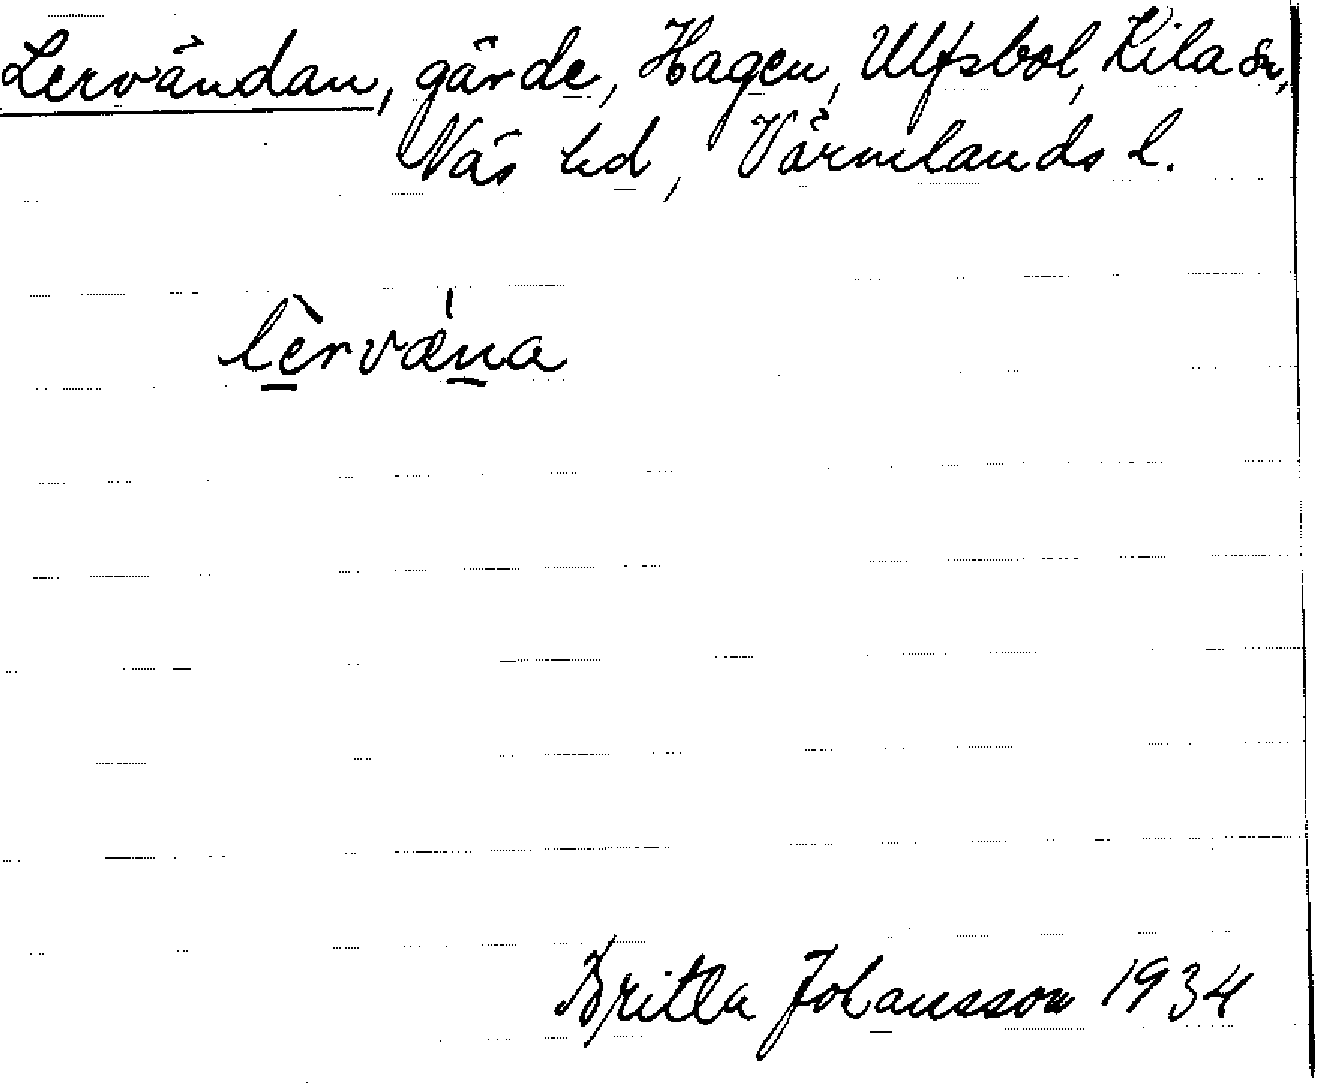 Lervändan, gärde, Hagen, Ulfsbol, Kila sn,
Näs hd, Värmlands l.
lèrvæ̀na
Britta Johansson 1934